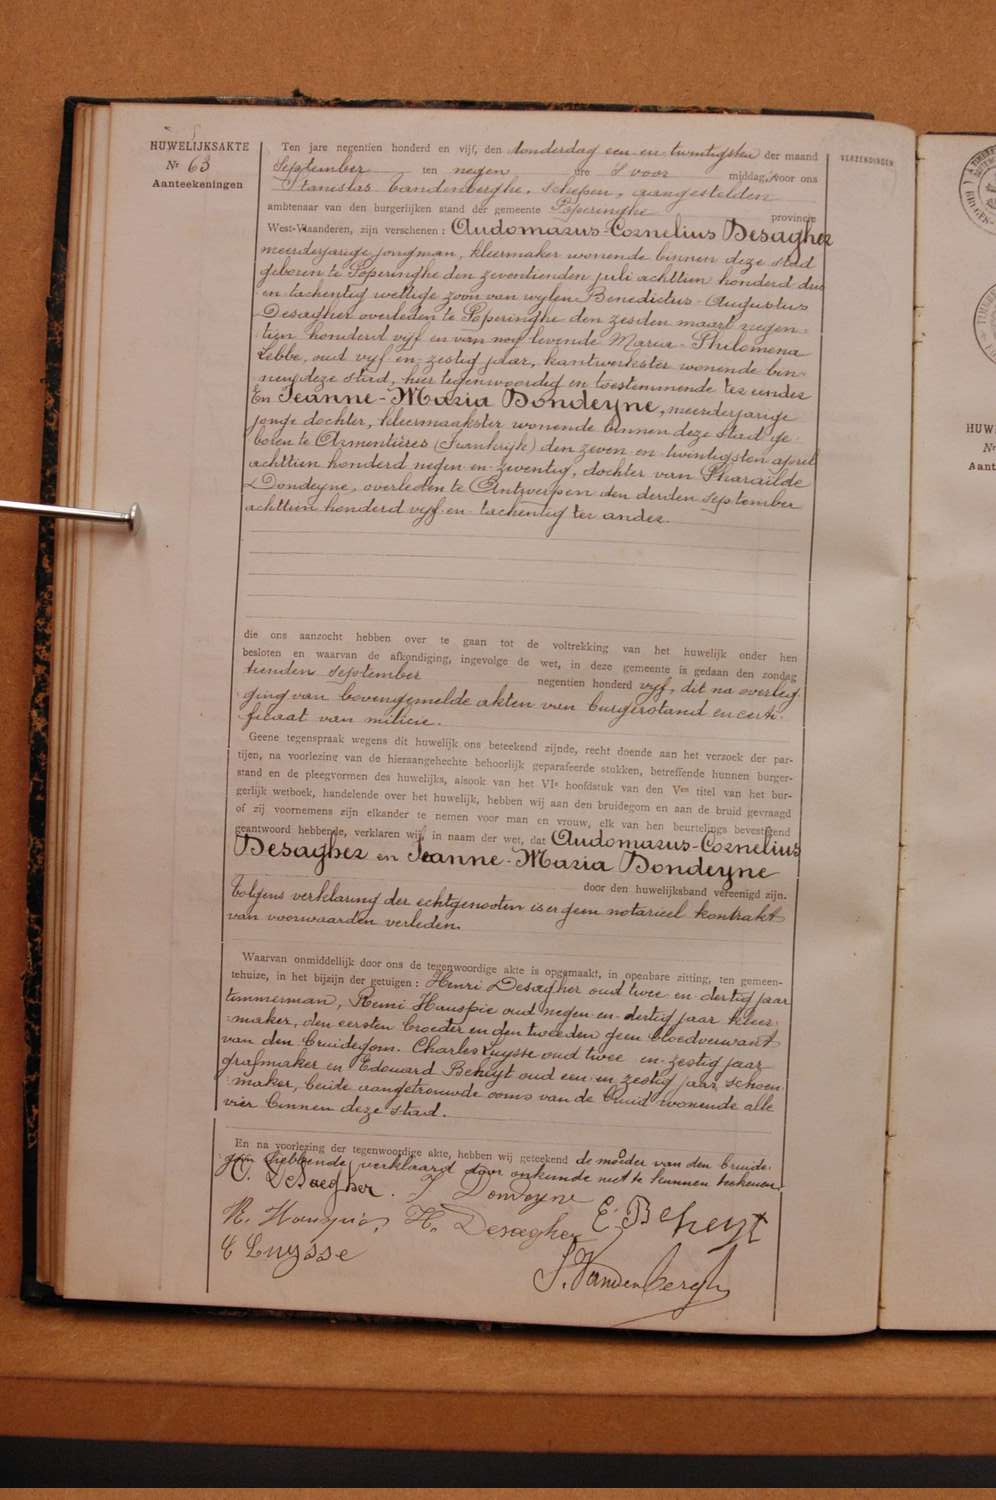 HUWELIJKSAKTE
Nr 63
Aanteekeningen
VERZENDINGEN
Ten jare negentien honderd en vijf, den donderdag een en twintigsten der maand
September ten negen ure voor middag, voor ons
Stanislas Vandenberghe, schepen, aangestelden
ambtenaar van den burgerlijken stand der gemeente Poperinghe provincie
West-Vlaanderen, zijn verschenen: Audomarus-Cornelius Desagher
meerderjarige jongman, kleermaker wonende binnen deze stad
geboren te Poperinghe den zeventienden juli achttien honderd drie
en tachentig wettige zoon van wylen Benedictus-Augustus
Desagher overleden te Poperinghe den zesden maart negen-
tien honderd vijf en van nog levende Maria-Philomena
Lebbe, oud vijf en zestig jaar, kantwerkster wonende bin-
nen deze stad, hier tegenwoordig en toestemmende ter eender
En Jeanne-Maria Dondeyne, meerderjarige
jonge dochter, kleermaakster wonende binnen deze stad ge-
boren te Armentières (Frankrijk) den zeven en twintigsten april
achttien honderd negen en zeventig, dochter van Pharaïlde
Dondeyne, overleden te Antwerpen den derden september
achttien honderd vijf en tachentig ter ander.
die ons aanzocht hebben over te gaan tot de voltrekking van het huwelijk onder hen
besloten en waarvan de afkondiging, ingevolge de wet, in deze gemeente is gedaan den zondag
tienden september negentien honderd vijf, dit na overleg-
ging van bovengemelde akten van burgerstand en certi-
ficaat van milicie.
Geene tegenspraak wegens dit huwelijk ons beteekend zijnde, recht doende aan het verzoek der par-
tijen, na voorlezing van de hieraangehechte behoorlijk geparafeerde stukken, betreffende hunnen burger-
stand en de pleegvormen des huwelijks, alsook van het VIe hoofdstuk van den Ven titel van het bur-
gerlijk wetboek, handelende over het huwelijk, hebben wij aan den bruidegom en aan de bruid gevraagd
of zij voornemens zijn elkander te nemen voor man en vrouw, elk van hen beurtelings bevestigend
geantwoord hebbende, verklaren wij, in naam der wet, dat Audomarus-Cornelius
Desagher en Jeanne-Maria Dondeyne
door den huwelijksband vereenigd zijn.
Volgens verklaring der echtgenooten is er geen notarieel kontrakt
van voorwaarden verleden.
Waarvan onmiddelijk door ons de tegenwoordige akte is opgemaakt, in openbare zitting, ten gemeen-
tehuize, in het bijzijn der getuigen: Henri Desagher oud twee en dertig jaar
timmerman, Remi Hauspie oud negen en dertig jaar kleer-
maker, den eersten broeder en den tweeden geen bloedverwant
van den bruidegom. Charles Luysse oud twee en zestig jaar
grafmaker en Edouard Beheyt oud een en zestig jaar schoen-
maker, beide aangetrouwde ooms van de bruid wonende alle
vier binnen deze stad.
En na voorlezing der tegenwoordige akte, hebben wij geteekend de moeder van den bruide-
gom hebbende verklaard door onkunde niet te kunnen teekenen.
C. DeSaegher. J Dondeyne
R. Hauspie, H. Desagher E. Beheyt
C Luysse
S. Vandenberghe
HUW
Nr
Aant